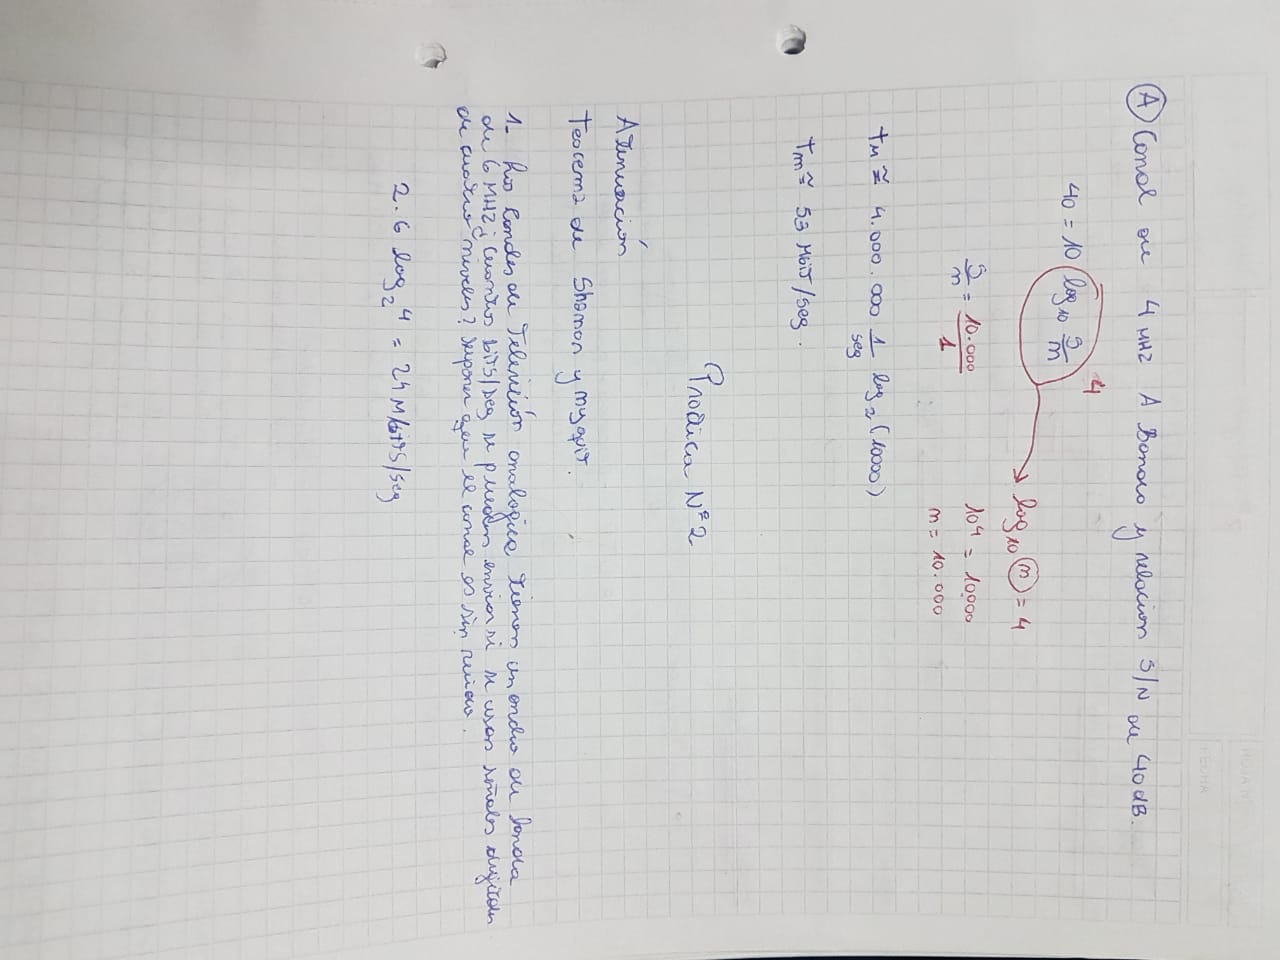 HOJA N°
FECHA
Ⓐ Canal de 4 MHZ A Banda y relacion S/N de 40 dB.
4
40 = 10 log₁₀ S/n
log₁₀ n = 4
S/n = 10.000/1
10⁴ = 10000
n = 10.000
tм ≅ 4.000.000 1/seg log₂ (10000)
Tm ≅ 53 Mbit/seg.
Practica N° 2
Atenuación
Teorema de Shanon y nyquist.
1- Los Canales de Televisión analogica tienen un ancho de banda
de 6 MHZ ¿ Cuantos bits/seg se pueden enviar si se usan señales digitales
de cuatro niveles? suponer que el canal es sin ruido.
2.6 log₂ 4 = 24 Mbits/seg